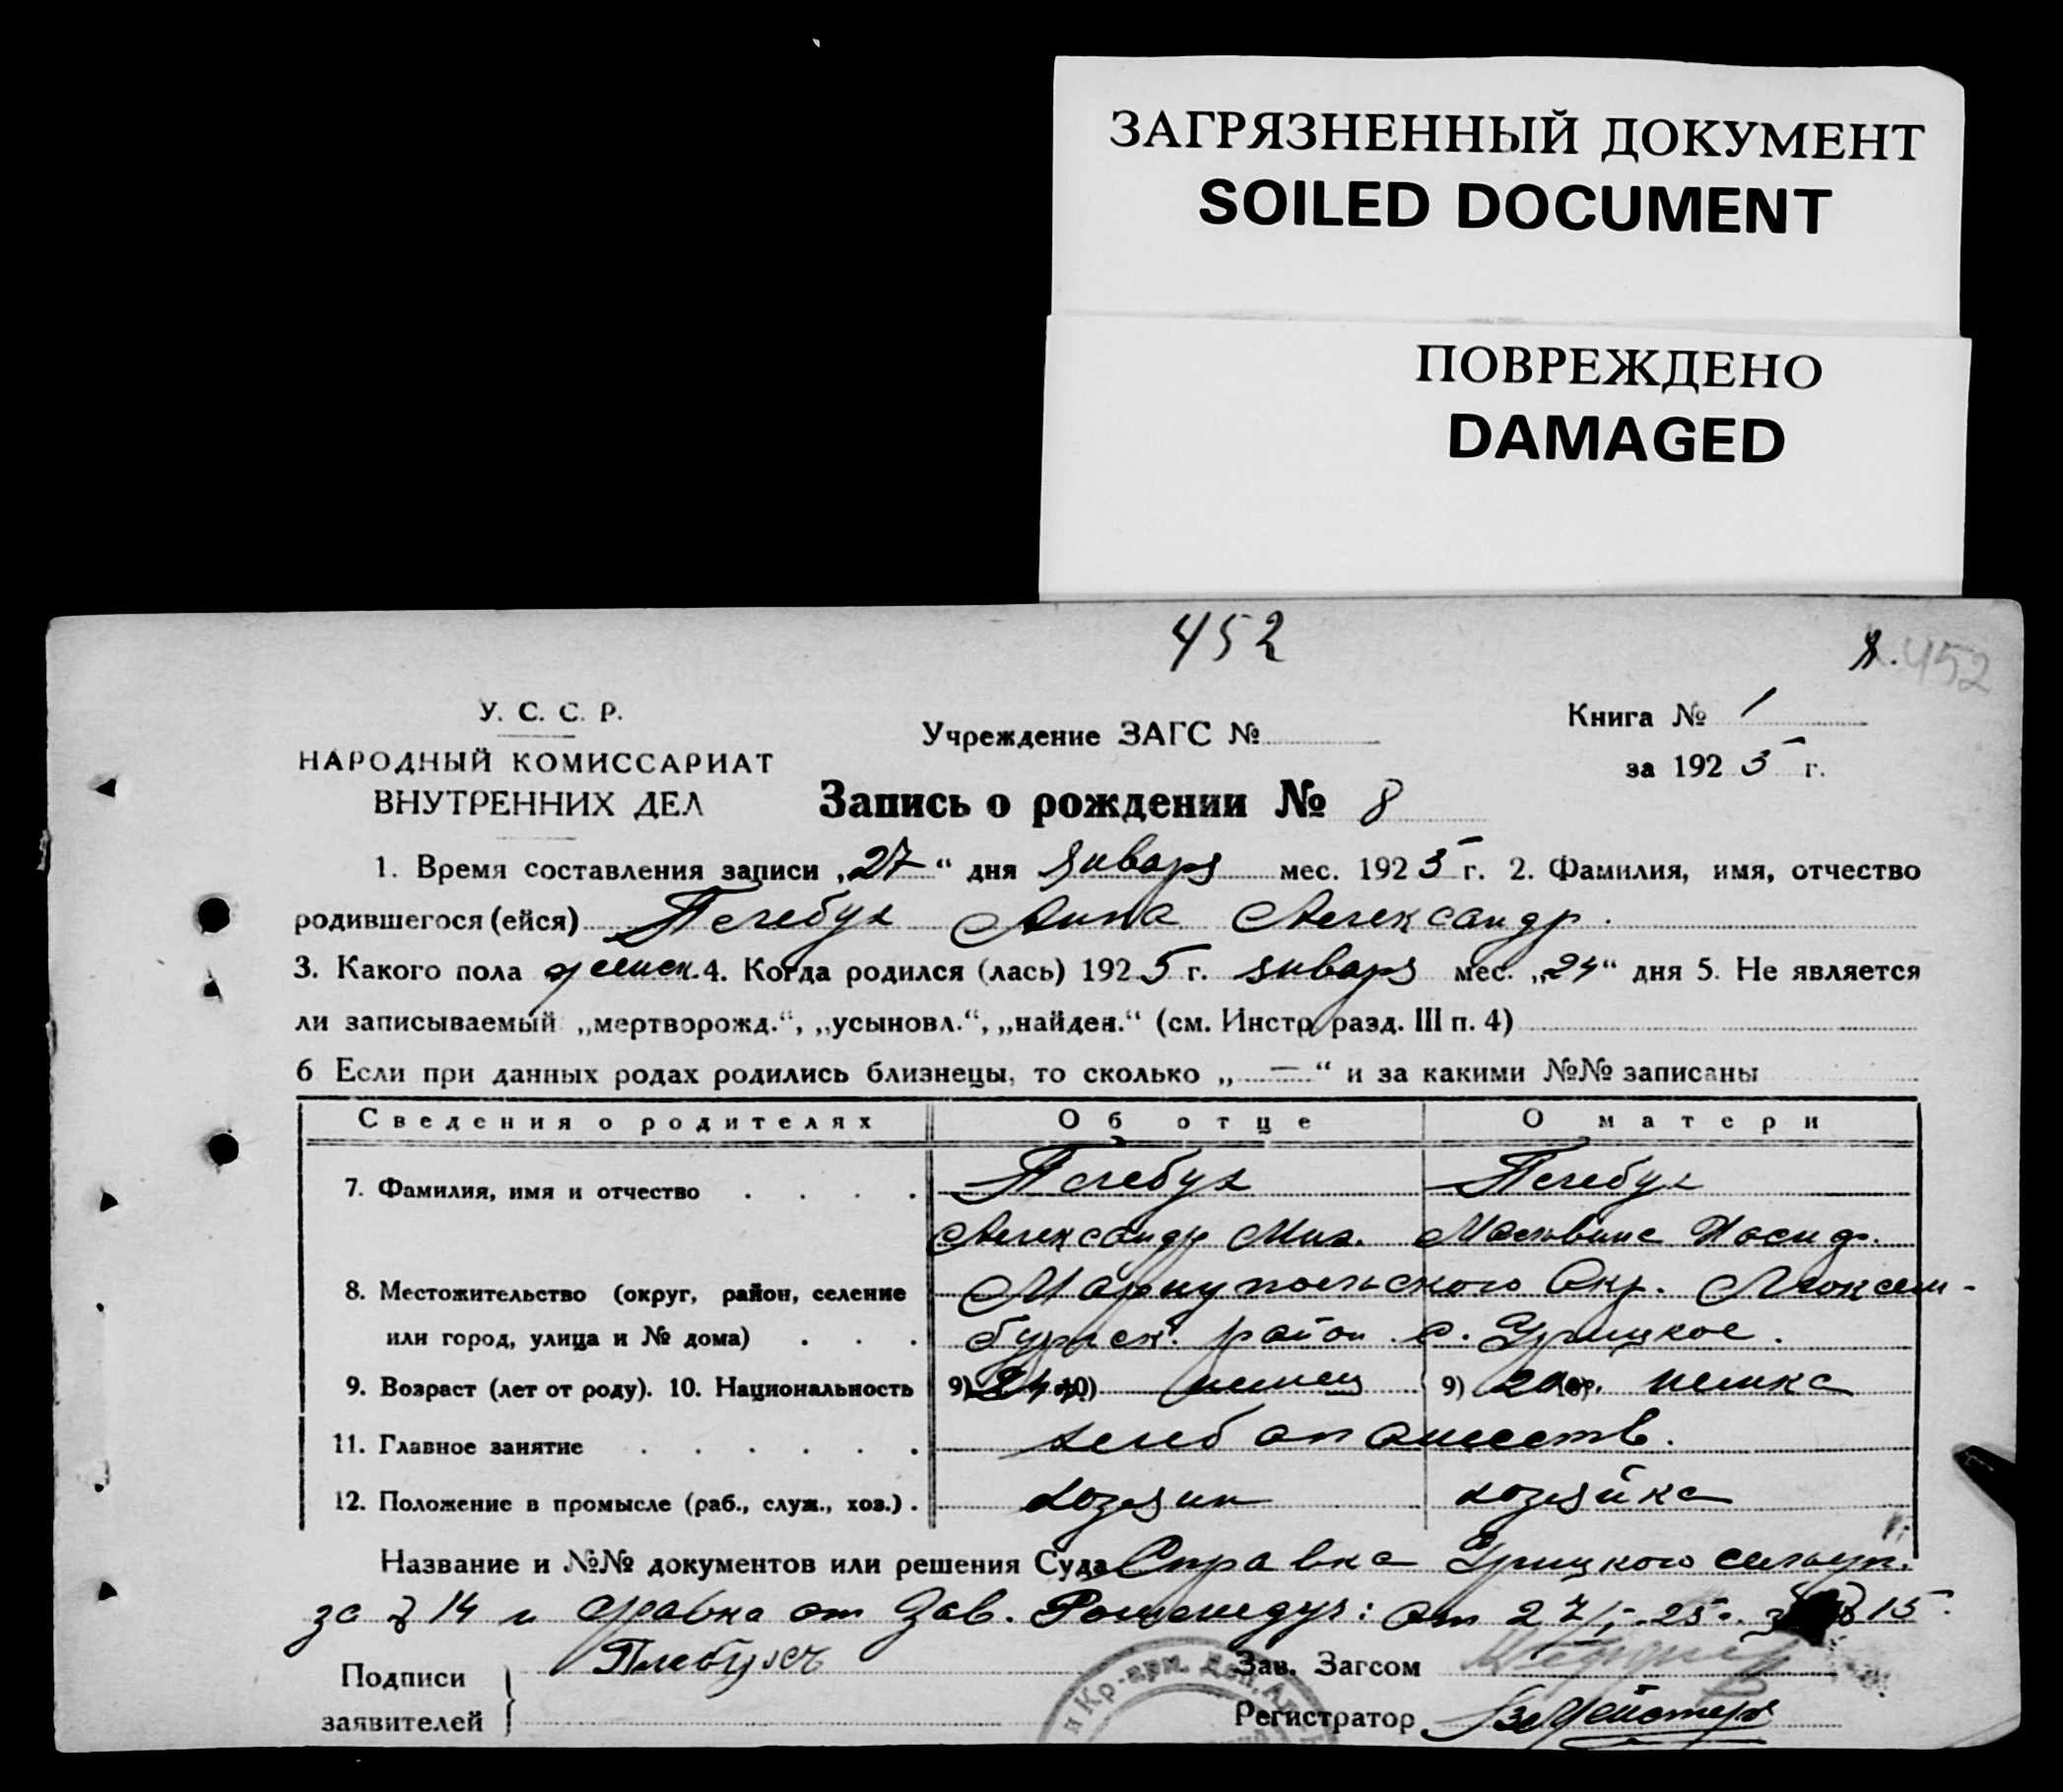 ЗАГРЯЗНЕННЫЙ ДОКУМЕНТ
SOILED DOCUMENT
ПОВРЕЖДЕНО
DAMAGED
452
452
У. С. С. Р.
НАРОДНЫЙ КОМИССАРИАТ
ВНУТРЕННИХ ДЕЛ
Учреждение ЗАГС №
Книга № 1
за 1925 г.
Запись о рождении № 8
1. Время составления записи „27“ дня январь мес. 1925 г. 2. Фамилия, имя, отчество
родившегося (ейся) Плебух Анна Александр.
3. Какого пола женск. 4. Когда родился (лась) 1925 г. январь мес. „24“ дня 5. Не является
ли записываемый „мертворожд.“, „усыновл.“, „найден.“ (см. Инстр. разд. III п. 4)
6 Если при данных родах родились близнецы, то сколько „—“ и за какими №№ записаны
Сведения о родителях Об отце О матери
7. Фамилия, имя и отчество . . . . Плебух Плебух
Александр Мих. Мальвине Иосиф.
8. Местожительство (округ, район, селение Мариупольского Окр. Люксем-
или город, улица и № дома) . . . бургск. район с. Урицкое.
9. Возраст (лет от роду). 10. Национальность 9) 24 10) немец 9) 20 10) немка
11. Главное занятие . . . . . . хлебопашеств.
12. Положение в промысле (раб., служ., хоз.) . хозяин хозяйка
Название и №№ документов или решения Суда Справка Урицкого сельуп.
за № 14 и справка от Зав. от 27/I-25г. 15.
Подписи
заявителей
Зав. Загсом
Регистратор